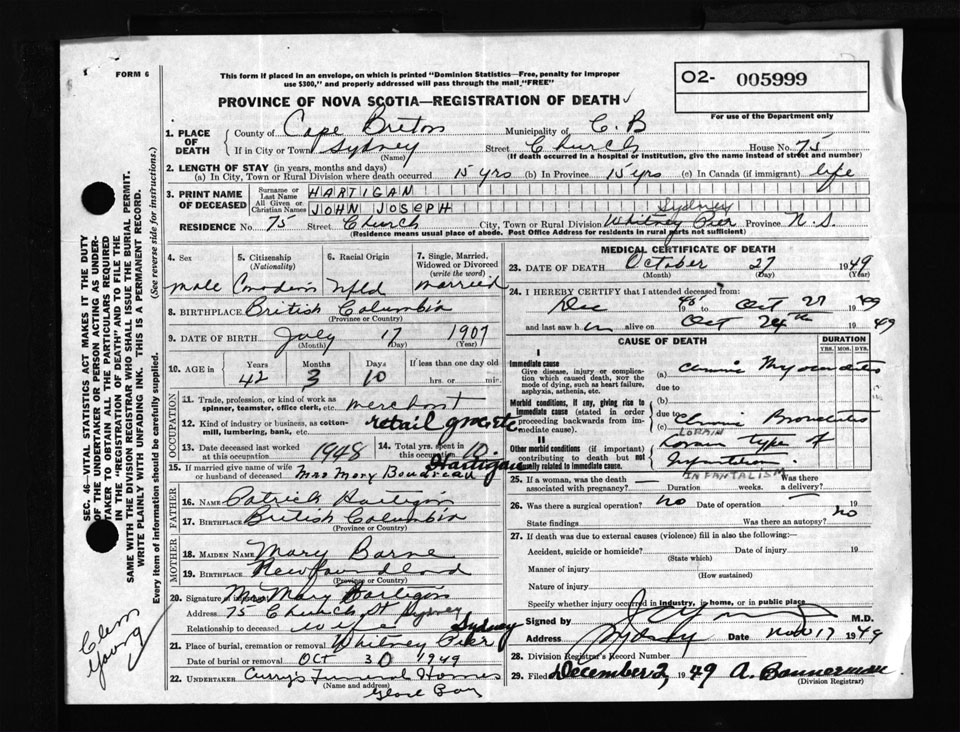 1 FORM 6
This form if placed in an envelope, on which is printed "Dominion Statistics—Free, penalty for improper
use $300," and properly addressed will pass through the mail "FREE"
O2- 005999
For use of the Department only
PROVINCE OF NOVA SCOTIA—REGISTRATION OF DEATH
1. PLACE OF DEATH
County of Cape Breton Municipality of C.B
If in City or Town Sydney (Name) Street Church House No. 75
(If death occurred in a hospital or institution, give the name instead of street and number)
2. LENGTH OF STAY (in years, months and days)
(a) In City, Town or Rural Division where death occurred 15 yrs (b) In Province 15 yrs (c) In Canada (if immigrant) life
3. PRINT NAME OF DECEASED
Surname or Last Name HARTIGAN
All Given or Christian Names JOHN JOSEPH
Sydney
RESIDENCE No. 75 Street Church City, Town or Rural Division Whitney Pier Province N.S.
(Residence means usual place of abode. Post Office Address for residents in rural parts not sufficient)
4. Sex
male
5. Citizenship (Nationality)
6. Racial Origin
Nfld
7. Single, Married, Widowed or Divorced (write the word)
married
8. BIRTHPLACE British Columbia
(Province or Country)
9. DATE OF BIRTH July 17 1907
(Month) (Day) (Year)
10. AGE in
Years 42
Months 3
Days 10
If less than one day old
hrs. or min.
OCCUPATION
11. Trade, profession, or kind of work as spinner, teamster, office clerk, etc. merchant
12. Kind of industry or business, as cotton-mill, lumbering, bank, etc. retail
13. Date deceased last worked at this occupation 1948
14. Total yrs. spent in this occupation 10
15. If married give name of wife or husband of deceased Mrs Mary Boudreau Hartigan
FATHER
16. NAME Patrick Hartigan
17. BIRTHPLACE British Columbia
(Province or Country)
MOTHER
18. MAIDEN NAME Mary Barne
19. BIRTHPLACE Newfoundland
(Province or Country)
20. Signature of informant Mrs Mary Hartigan
Address 75 Church St Sydney
Relationship to deceased wife
Sydney
21. Place of burial, cremation or removal Whitney Pier
Date of burial or removal OCT 30 1949
22. UNDERTAKER Curry's Funeral Homes
(Name and address)
Glace Bay
MEDICAL CERTIFICATE OF DEATH
23. DATE OF DEATH October 27 1949
(Month) (Day) (Year)
24. I HEREBY CERTIFY that I attended deceased from:
Dec 1948 to Oct 27 1949
and last saw h im alive on Oct 24th 1949
CAUSE OF DEATH
DURATION
YRS. MOS. DYS.
I
Immediate cause
Give disease, injury or complication which caused death, not the mode of dying, such as heart failure, asphyxia, asthenia, etc.
(a) Chronic Myocarditis
due to
Morbid conditions, if any, giving rise to immediate cause (stated in order proceeding backwards from immediate cause).
(b)
due to
(c) Chronic Bronchitis
II
Other morbid conditions (if important) contributing to death but not causally related to immediate cause.
LORAIN
Lorain type of
Infantilism.
INFANTALISM
25. If a woman, was the death associated with pregnancy? — Duration — weeks. Was there a delivery?
26. Was there a surgical operation? no Date of operation 19
State findings Was there an autopsy? no
27. If death was due to external causes (violence) fill in also the following:
Accident, suicide or homicide? Date of injury 19
(State which)
Manner of injury
(How sustained)
Nature of injury
Specify whether injury occurred in industry, in home, or in public place
Signed by M.D.
Address Sydney Date Nov 17 1949
28. Division Registrar's Record Number
29. Filed December 2, 1949 A. Bannerman
(Division Registrar)
SEC. 46—VITAL STATISTICS ACT MAKES IT THE DUTY
OF THE UNDERTAKER OR PERSON ACTING AS UNDER-
TAKER TO OBTAIN ALL THE PARTICULARS REQUIRED
IN THE "REGISTRATION OF DEATH" AND TO FILE THE
SAME WITH THE DIVISION REGISTRAR WHO SHALL ISSUE THE BURIAL PERMIT.
WRITE PLAINLY WITH UNFADING INK. THIS IS A PERMANENT RECORD.
Every item of information should be carefully supplied. (See reverse side for instructions.)
Young